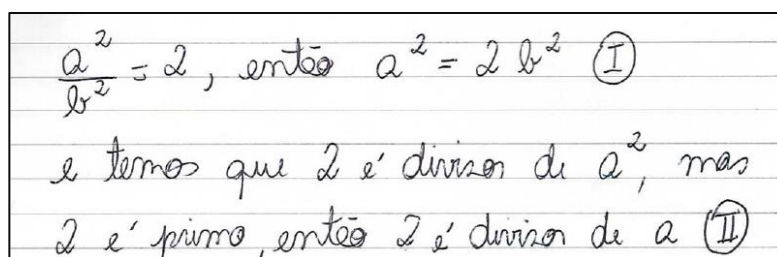 a²/b² = 2, então a² = 2 b² (I)
e temos que 2 é divisor de a², mas
2 é primo, então 2 é divisor de a (II)